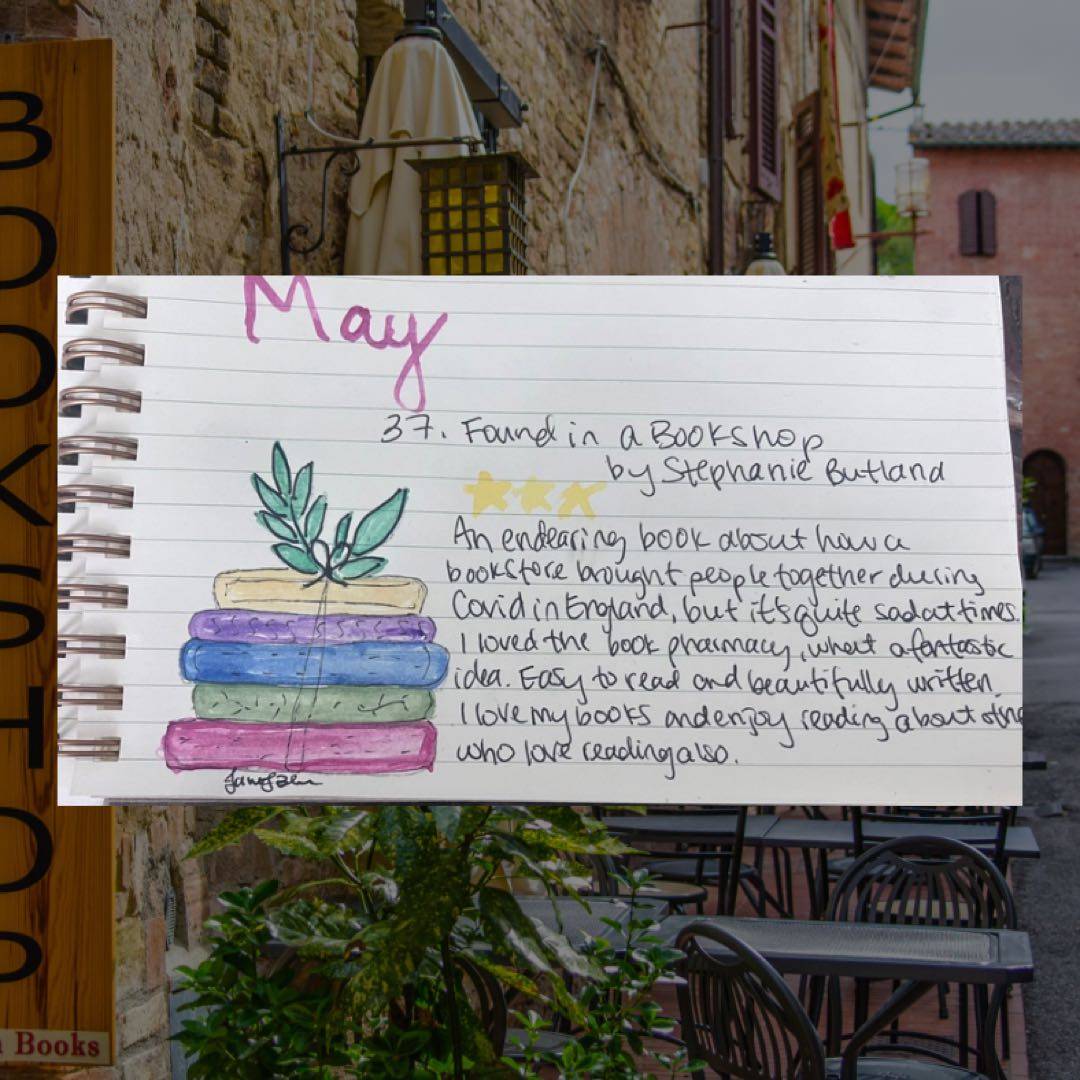 BOOKSHOP
Books
May
37. Found in a Bookshop
by Stephanie Butland
An endearing book about how a
bookstore brought people together during
Covid in England, but it's quite sad at times.
I loved the book pharmacy, what a fantastic
idea. Easy to read and beautifully written.
I love my books and enjoy reading about
who love reading also.